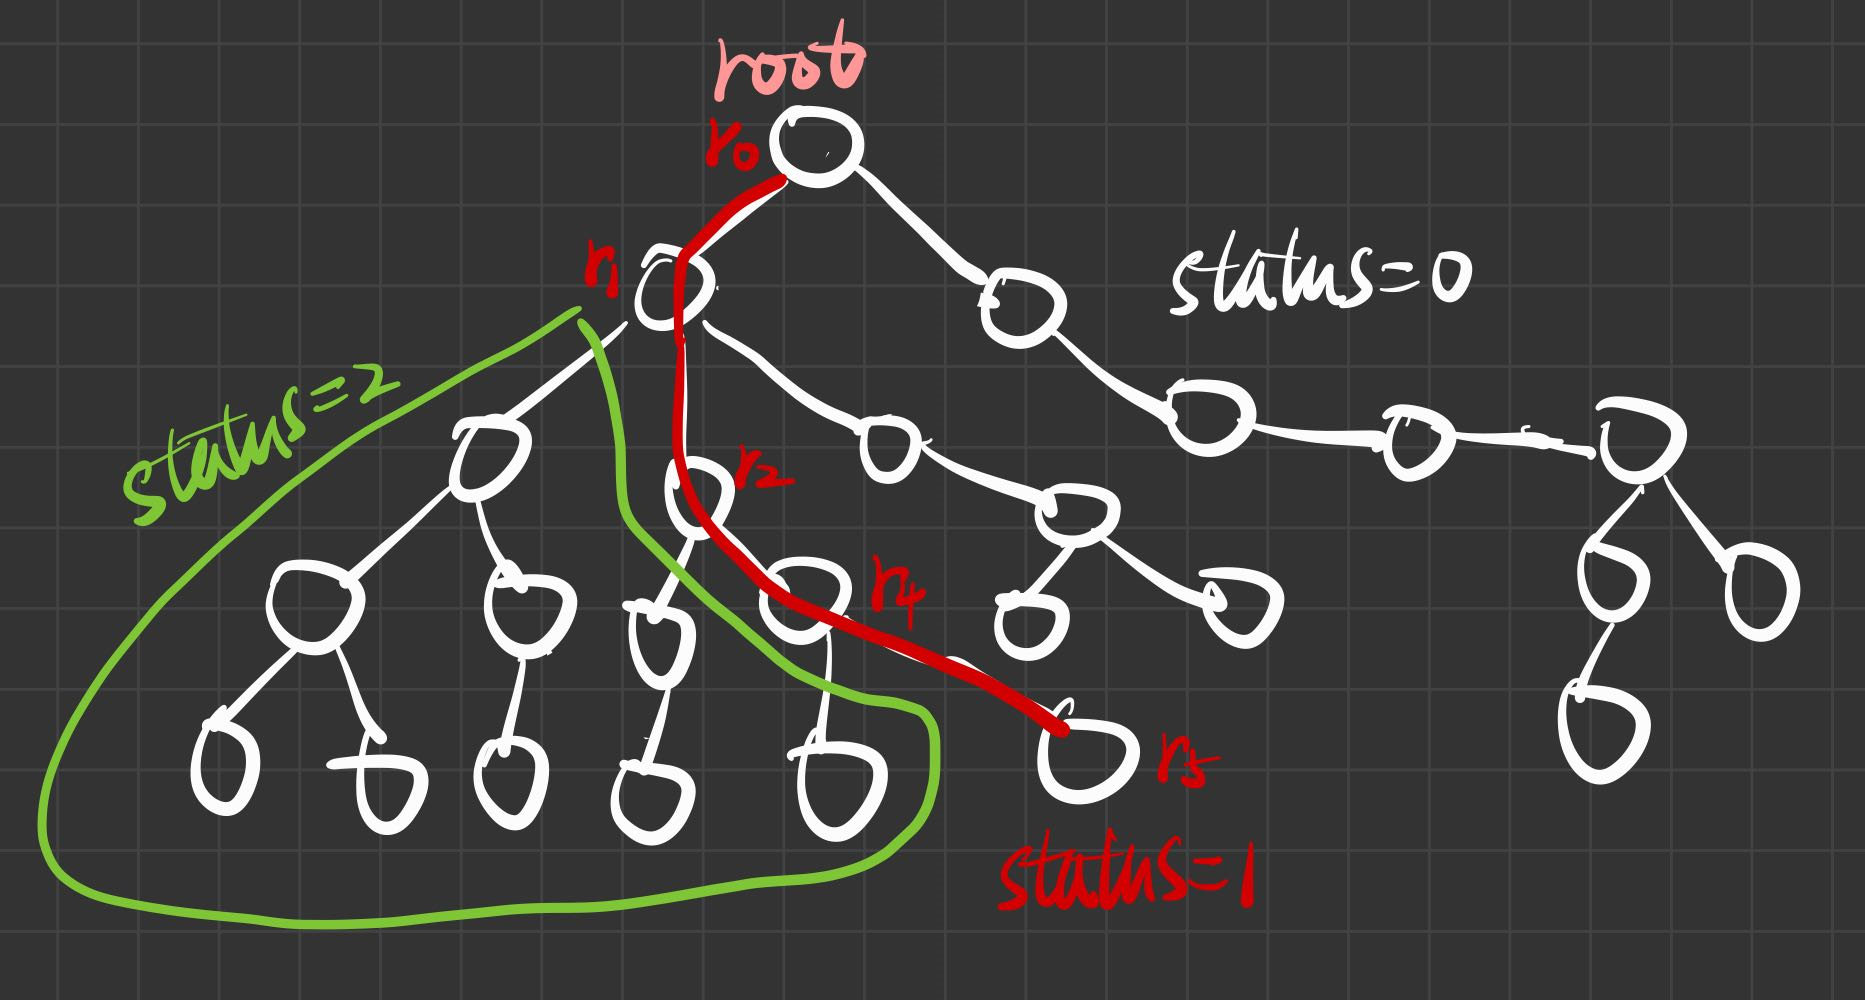 root
r0
r1
status=0
status=2
r2
r4
r5
status=1